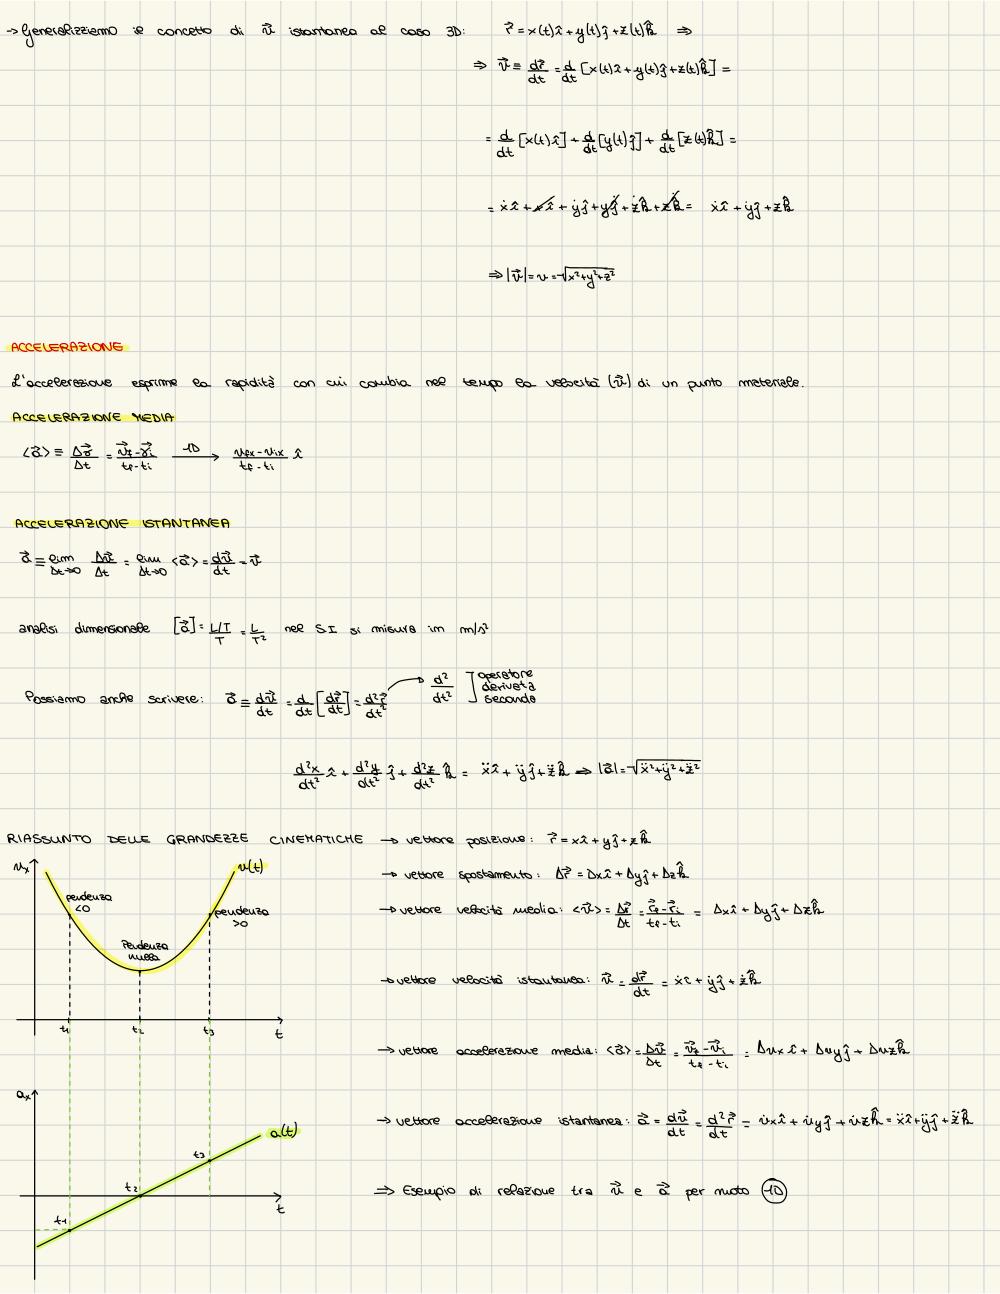 → Generalizziamo il concetto di v⃗ istantanea al caso 3D: r⃗ = x(t)î + y(t)ĵ + z(t)k̂ ⇒
⇒ v⃗ ≡ dr⃗/dt = d/dt [x(t)î + y(t)ĵ + z(t)k̂] =
= d/dt [x(t)î] + d/dt [y(t)ĵ] + d/dt [z(t)k̂] =
= ẋî + xî + ẏĵ + yĵ + żk̂ + zk̂ = ẋî + ẏĵ + żk̂
⇒ |v⃗| = v = √x²+y²+z²
ACCELERAZIONE
L'accelerazione esprime la rapidità con cui cambia nel tempo la velocità (v⃗) di un punto materiale.
ACCELERAZIONE MEDIA
<a⃗> ≡ Δv⃗/Δt = v⃗f - v⃗i / tf - ti —1D→ vfx - vix / tf - ti î
ACCELERAZIONE ISTANTANEA
a⃗ ≡ lim Δt→0 Δv⃗/Δt = lim Δt→0 <a⃗> = dv⃗/dt = v⃗
analisi dimensionale [a⃗] = L/T / T = L/T² nel SI si misura im m/s²
Possiamo anche scrivere: a⃗ ≡ dv⃗/dt = d/dt [dr⃗/dt] = d²r⃗/dt² → d²/dt² ] operatore derivata seconda
d²x/dt² î + d²y/dt² ĵ + d²z/dt² k̂ = ẍî + ÿĵ + z̈k̂ ⇒ |a⃗| = √ẍ²+ÿ²+z̈²
RIASSUNTO DELLE GRANDEZZE CINEMATICHE → vettore posizione: r⃗ = xî + yĵ + zk̂
→ vettore spostamento: Δr⃗ = Δxî + Δyĵ + Δzk̂
→ vettore velocità media: <v⃗> = Δr⃗/Δt = r⃗f - r⃗i / tf - ti = Δxî + Δyĵ + Δzk̂
→ vettore velocità istantanea: v⃗ = dr⃗/dt = ẋî + ẏĵ + żk̂
→ vettore accelerazione media: <a⃗> = Δv⃗/Δt = v⃗f - v⃗i / tf - ti = Δvxî + Δvyĵ + Δvzk̂
→ vettore accelerazione istantanea: a⃗ = dv⃗/dt = d²r⃗/dt = v̇xî + v̇yĵ + v̇zk̂ = ẍî + ÿĵ + z̈k̂
⇒ Esempio di relazione tra v⃗ e a⃗ per moto 1D
vx
v(t)
pendenza <0
pendenza >0
Pendenza nulla
t1 t2 t3 t
ax
a(t)
t3
t2
t
t1